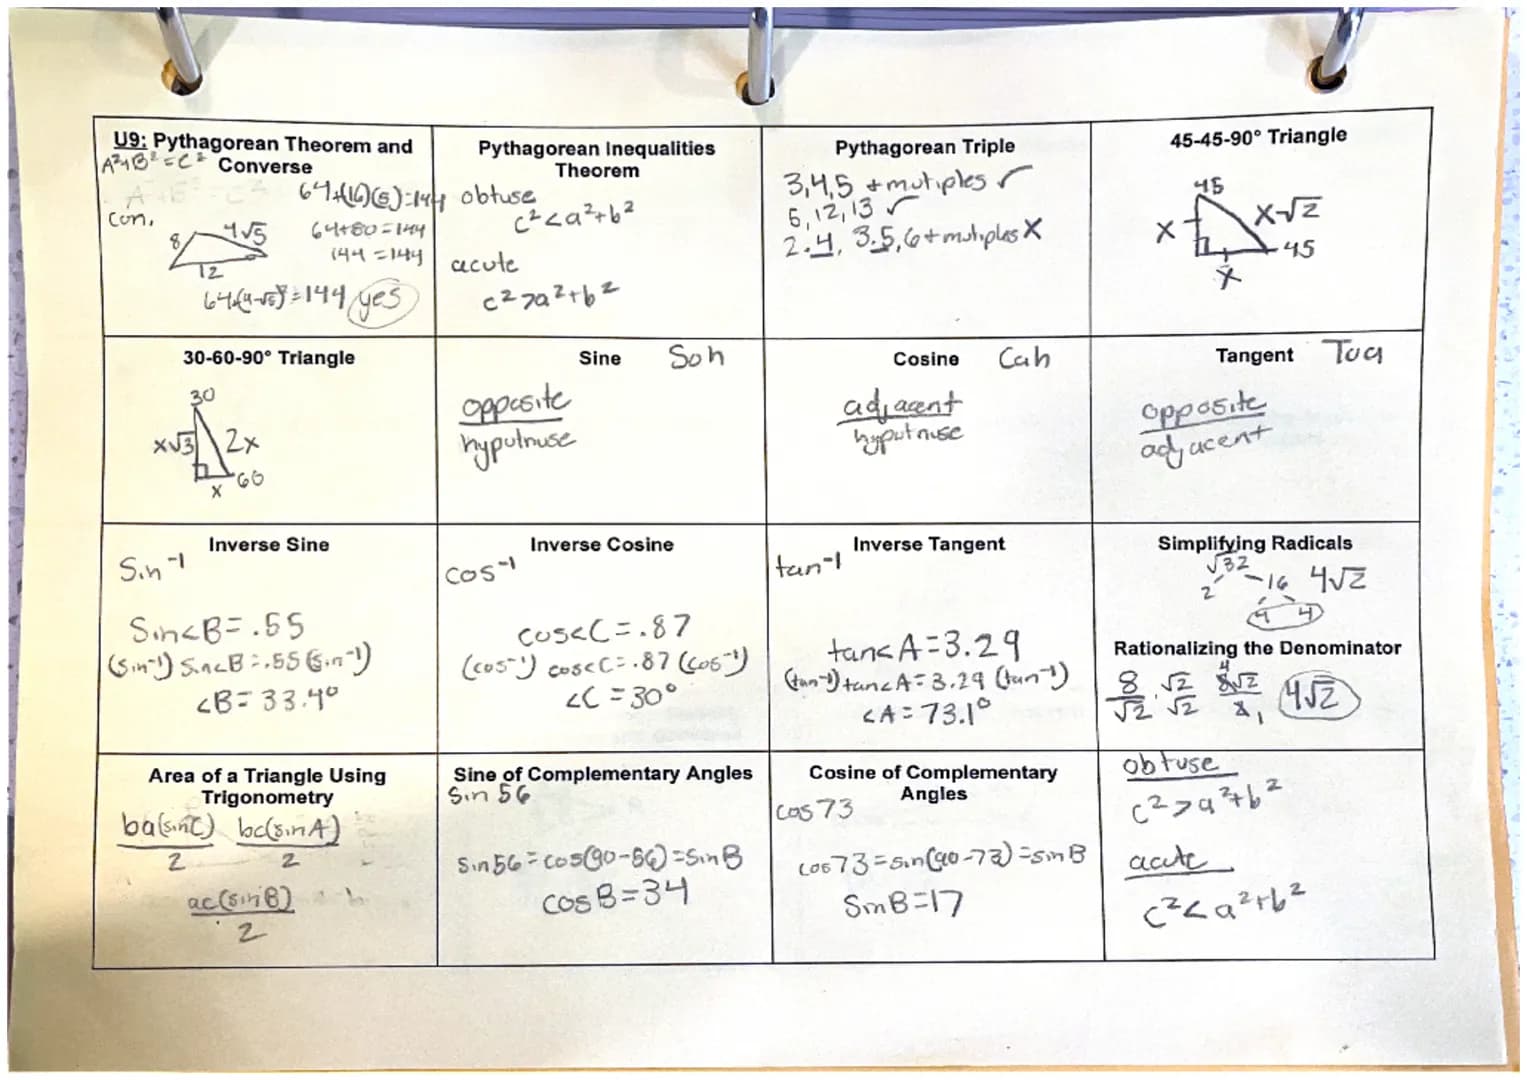 U9: Pythagorean Theorem and
A²+B²=C² Converse
64+(16)(5)=144
con.
8 4√5 64+80=144
144=144
12
64+(4√5)²=144 yes
Pythagorean Inequalities
Theorem
obtuse
c²<a²+b²
acute
c²>a²+b²
Pythagorean Triple
3,4,5 + mutiples ✓
5,12,13 ✓
2.4, 3.5, 6 + mutiples X
45-45-90° Triangle
45
x x√2
45
x
30-60-90° Triangle
30
x√3 2x
60
x
Sine Soh
opposite
hyputnuse
Cosine Cah
adjacent
hyputnuse
Tangent Toa
opposite
adjacent
Inverse Sine
Sin⁻¹
Sin<B=.55
(sin⁻¹) Sin<B=.55 (sin⁻¹)
<B=33.4°
Inverse Cosine
cos⁻¹
cos<C=.87
(cos⁻¹) cos<C=.87 (cos⁻¹)
<C=30°
Inverse Tangent
tan⁻¹
tan<A=3.29
(tan⁻¹) tan<A=3.29 (tan⁻¹)
<A=73.1°
Simplifying Radicals
√32
2 16 4√2
4 4
Rationalizing the Denominator
4
8 √2 8√2 4√2
√2 √2 2, 1
Area of a Triangle Using
Trigonometry
ba(sinC) bc(sinA)
2 2
ac(sinB)
2
Sine of Complementary Angles
Sin 56
Sin56=cos(90-56)=SinB
cosB=34
Cosine of Complementary
Angles
cos73
cos73=sin(90-73)=sinB
SinB=17
obtuse
c²>a²+b²
acute
c²<a²+b²